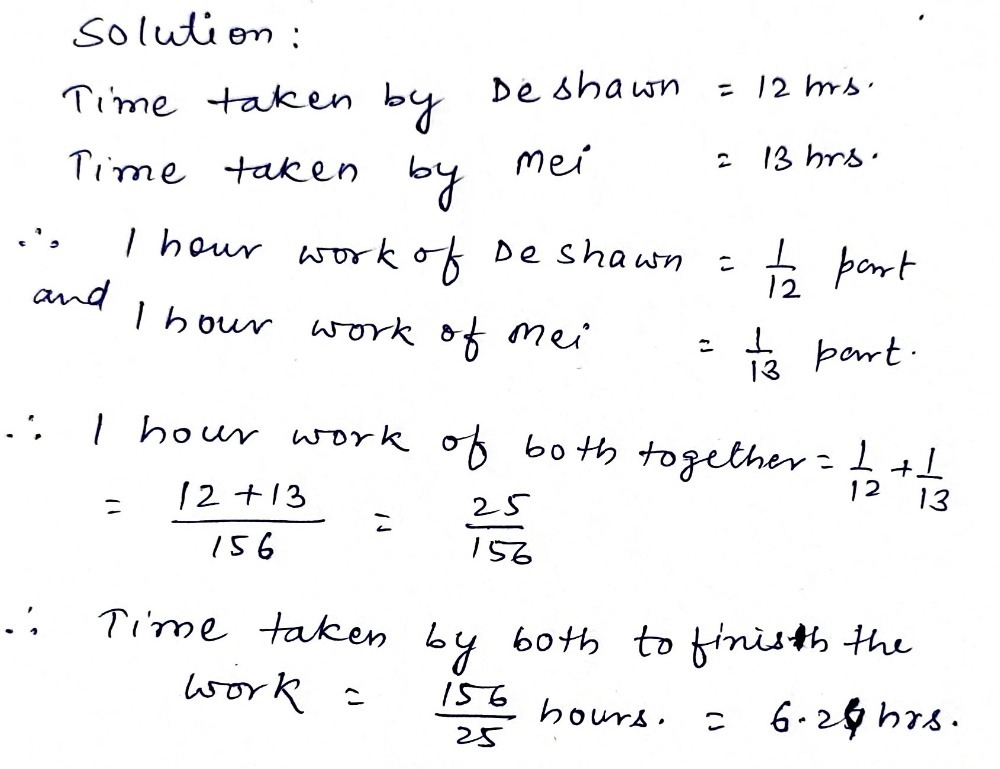 Solution:
Time taken by Deshawn = 12 hrs.
Time taken by Mei = 13 hrs.
∴ 1 hour work of Deshawn = 1/12 part
and 1 hour work of Mei = 1/13 part.
∴ 1 hour work of both together = 1/12 + 1/13
= (12+13)/156 = 25/156
∴ Time taken by both to finish the
work = 156/25 hours. = 6.24 hrs.